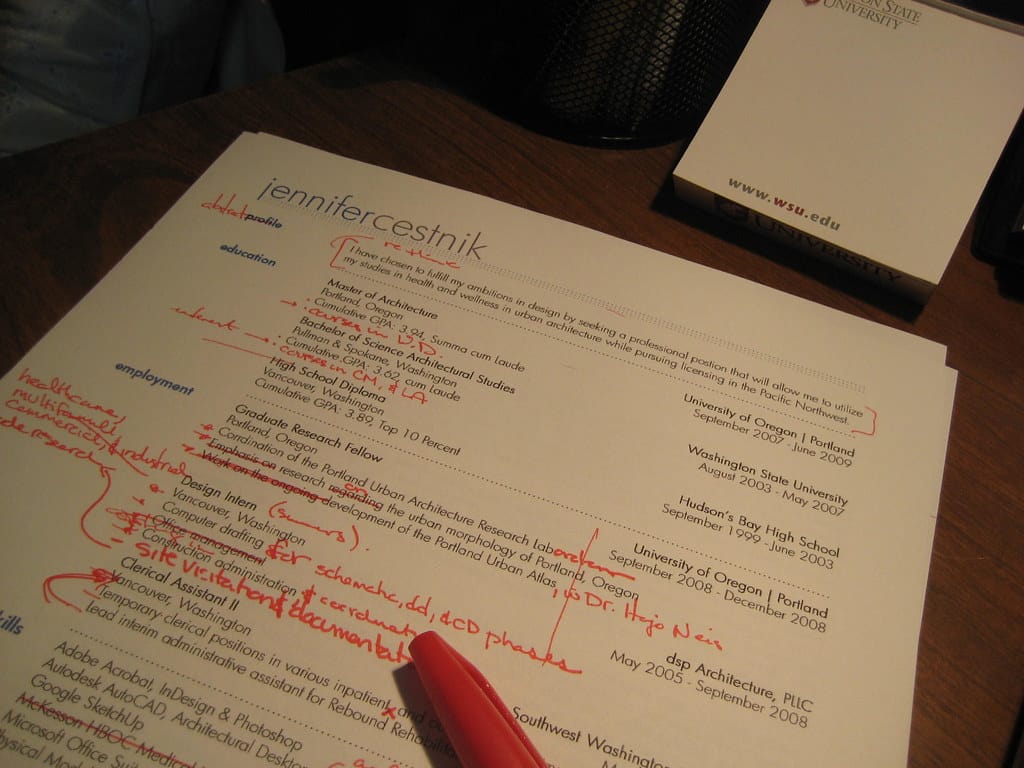 ON STATE
UNIVERSITY
www.wsu.edu
UNIVERSITY
jennifercestnik
abstract profile
rewrite
I have chosen to fulfill my ambitions in design by seeking a professional postion that will allow me to utilize
my studies in health and wellness in urban architecture while pursuing licensing in the Pacific Northwest.
education
Master of Architecture
University of Oregon | Portland
Portland, Oregon
September 2007 - June 2009
Cumulative GPA: 3.94, Summa cum Laude
courses in U.D.
Bachelor of Science Architectural Studies
Washington State University
Pullman & Spokane, Washington
August 2003 - May 2007
Cumulative GPA: 3.62, cum Laude
interest
courses in CM, & LA
High School Diploma
Hudson's Bay High School
Vancouver, Washington
September 1999 - June 2003
Cumulative GPA: 3.89, Top 10 Percent
employment
Graduate Research Fellow
University of Oregon | Portland
Portland, Oregon
September 2008 - December 2008
Coordination of the Portland Urban Architecture Research Laboratory
Emphasis on research regarding the urban morphology of Portland, Oregon
Work on the ongoing development of the Portland Urban Atlas, w Dr. Hajo Neis
healthcare,
multifamily,
commercial, & industrial
code research
Design Intern (summers).
dsp Architecture, PLLC
Vancouver, Washington
May 2005 - September 2008
Computer drafting for schematic, dd, & CD phases
Office management
Construction administration & coordinat
- site visitation & documentat
Clerical Assistant II
Southwest Washington
Vancouver, Washington
Temporary clerical positions in various inpatient and ou
Lead interim administrative assistant for Rebound Rehabilit
kills
Adobe Acrobat, InDesign & Photoshop
Autodesk AutoCAD, Architectural Deskto
Google SketchUp
McKesson HBOC Medical
Microsoft Office Suit
Physical Mode